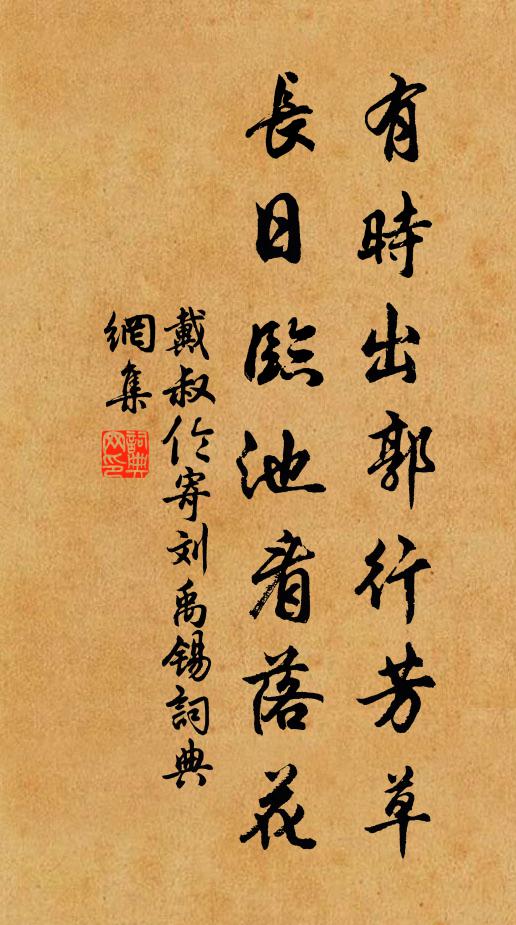 有時出郭行芳草
長日臨池看落花
戴叔伦寄刘禹锡詞典
網集
詞典网印